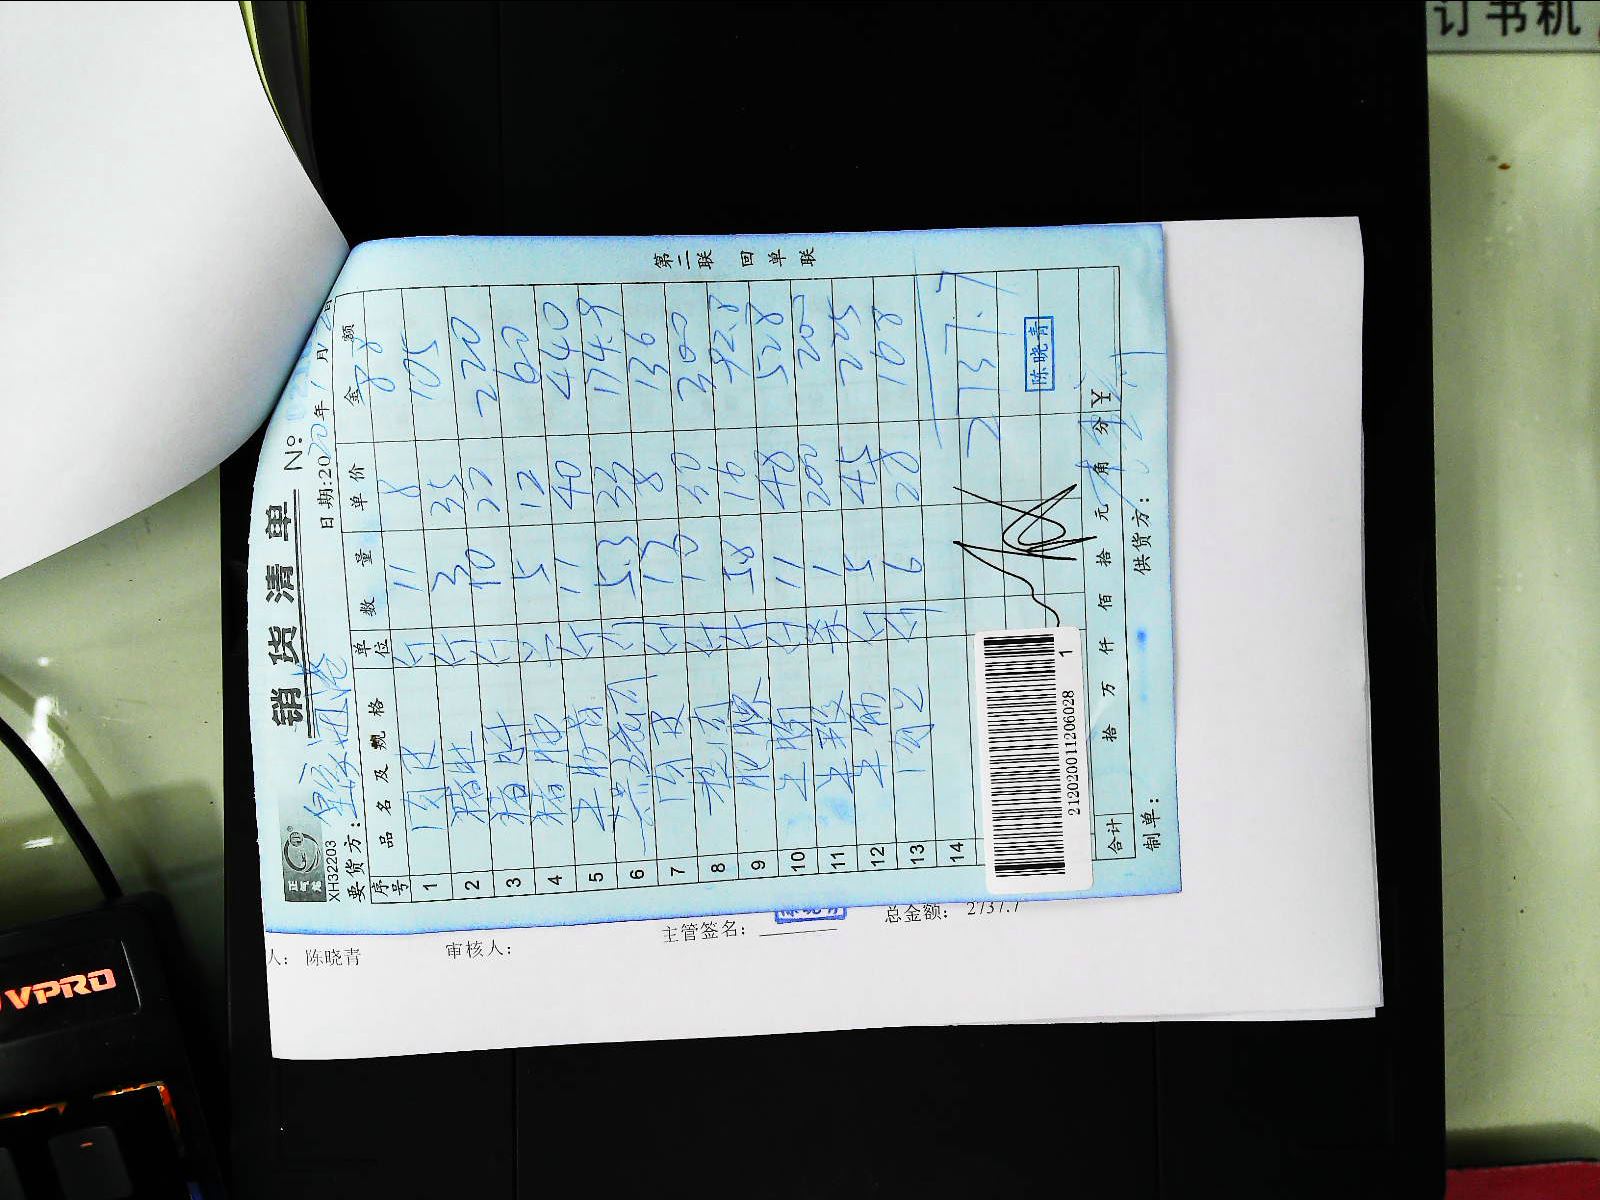 订书机
第二联 回单联
正气龙
XH32203
销货清单
No:
要货方:
日期:20 年 1 月
序号 品名及规格 单位 数量 单价 金额
1 肉皮 斤 11 8 88
2 猪肚 斤 3 35 105
3 斤 10 22 220
4 猪肺 只 5 12 60
5 斤 11 40 440
6 斤 5.3 33 174.9
7 肉皮 斤 17 8 136
8 斤 10 30 300
9 肥肠 斤 5.8 16 92.8
10 牛腩 斤 11 48 528
11 牛鞭 条 1 200 200
12 斤 5 45 225
13 斤 6 28 168
14
2737.7
陈晓青
212020011206028 1
合计 拾 万 仟 佰 拾 元 角 分 ¥
制单: 供货方:
人: 陈晓青 审核人: 主管签名: 陈晓青 总金额: 2737.7
VPRO